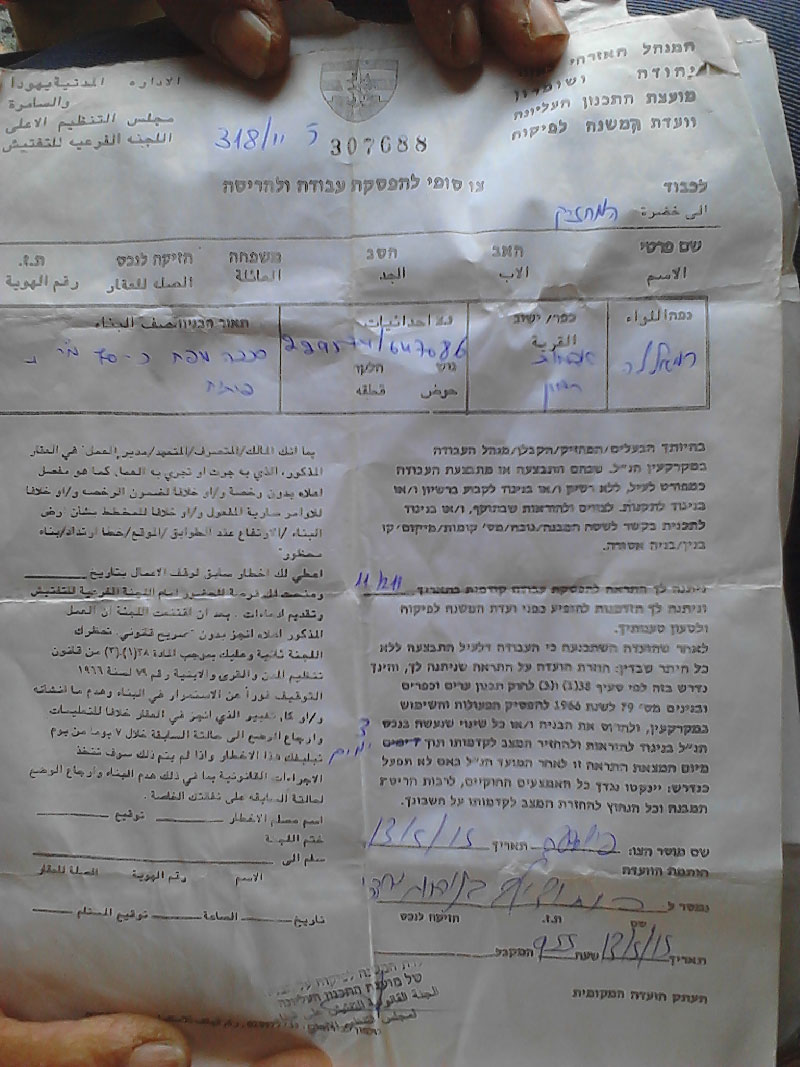 המנהל האזרחי
יהודה ושומרון
מועצת התכנון העליונה
וועדת המשנה לפיקוח
الادارة المدنية يهودا
والسامرة
مجلس التنظيم الاعلى
اللجنه الفرعيه للتفتيش
318/11
307688
צו סופי להפסקת עבודה ולהריסה
לכבוד
الى حضرة: המחזיק
שם פרטי האב הסב משפחה הזיקה לנכס ת.ז.
الاسم الاب الجد العائلة الصله للعقار رقم الهوية
נפה/לואה כפר/ישוב נ.צ احداثيات תאור הבניה/وصف البناء
القرية
רמאללה
גוש חלקה
حوض قطعه
בהיותך הבעלים/המחזיק/הקבלן/מנהל העבודה
במקרקעין הנ"ל, שבהם התבצעה או מתבצעת העבודה
כמפורט לעיל, ללא רשיון ו/או בניגוד לקבוע ברשיון ו/או
בניגוד לתקנות, לצווים ולהוראות שבתוקף, ו/או בניגוד
לתכנית בקשר לשטח המבנה/גובה/מס' קומות/מיקום/קו
בנין/בניה אסורה.
ניתנה לך התראה להפסקת עבודה קודמת בתאריך
וניתנה לך הזדמנות להופיע בפני ועדת המשנה לפיקוח
ולטעון טענותיך.
לאחר שהועדה השתכנעה כי העבודה דלעיל התבצעה ללא
כל היתר שבדין: חוזרת הועדה על התראה שניתנה לך, והינך
נדרש בזה לפי סעיף 38(1) ו(3) לחוק תכנון ערים וכפרים
ובנינים מס' 79 לשנת 1966 להפסיק הפעולות והשימוש
במקרקעין, ולהרוס את הבניה ו/או כל שינוי שנעשה בנכס
הנ"ל בניגוד להוראות ולהחזיר המצב לקדמותו תוך 7 ימים 3 ימים
מיום המצאת התראה זו לאחר המועד הנ"ל באם לא תפעל
כנדרש: יינקטו נגדך כל האמצעים החוקיים, לרבות הריסת
המבנה וכל הנחוץ להחזרת המצב לקדמותו על חשבונך.
שם מוסר הצו: תאריך 13/5/15
חותמת הוועדה
נמסר ל
שם ת.ז. הזיקה לנכס
תאריך 13/5/15 שעה 955 המקבל
העתק הועדה המקומית
بما انك المالك/المتصرف/المتعهد/مدير العمل في العقار
المذكور، الذي به جرت او تجري به العمل، كما هو مفصل
اعلاه بدون رخصة و/او خلافا لمضمون الرخصه و/او خلافا
للاوامر سارية المفعول و/او خلافا للمخطط بشأن ارض
البناء/الارتفاع عدد الطوابق/الموقع/خط ارتداد/بناء
محظور
اعطي لك اخطار سابق لوقف الاعمال بتاريخ
ومنحت لك فرصة للحضور امام اللجنة الفرعية للتفتيش
وتقديم ادعاءات. بعد ان اقتنعت اللجنة ان العمل
المذكور اعلاه انجز بدون تصريح قانوني، تخطرك
اللجنة ثانية وعليك بموجب المادة ٣٨(١)،(٣) من قانون
تنظيم المدن والقرى والابنية رقم ٧٩ لسنة ١٩٦٦
التوقيف فوراً عن الاستمرار في البناء وهدم ما انشأته
و/او كل تغيير الذي انجز في العقار خلافا للتعليمات
وارجاع الوضع الى حالته السابقة خلال ٧ يوما من يوم
تبليغك هذا الاخطار واذا لم يتم ذلك سوف تتخذ
الاجراءات القانونية بما في ذلك هدم البناء وارجاع الوضع
لحالته السابقه على نفقتك الخاصة.
اسم مسلم الاخطار توقيع
ختم اللجنة
سلم الى
الاسم رقم الهوية الصلة للعقار
تاريخ الساعة توقيع المستلم
של מועצת התכנון העליונה